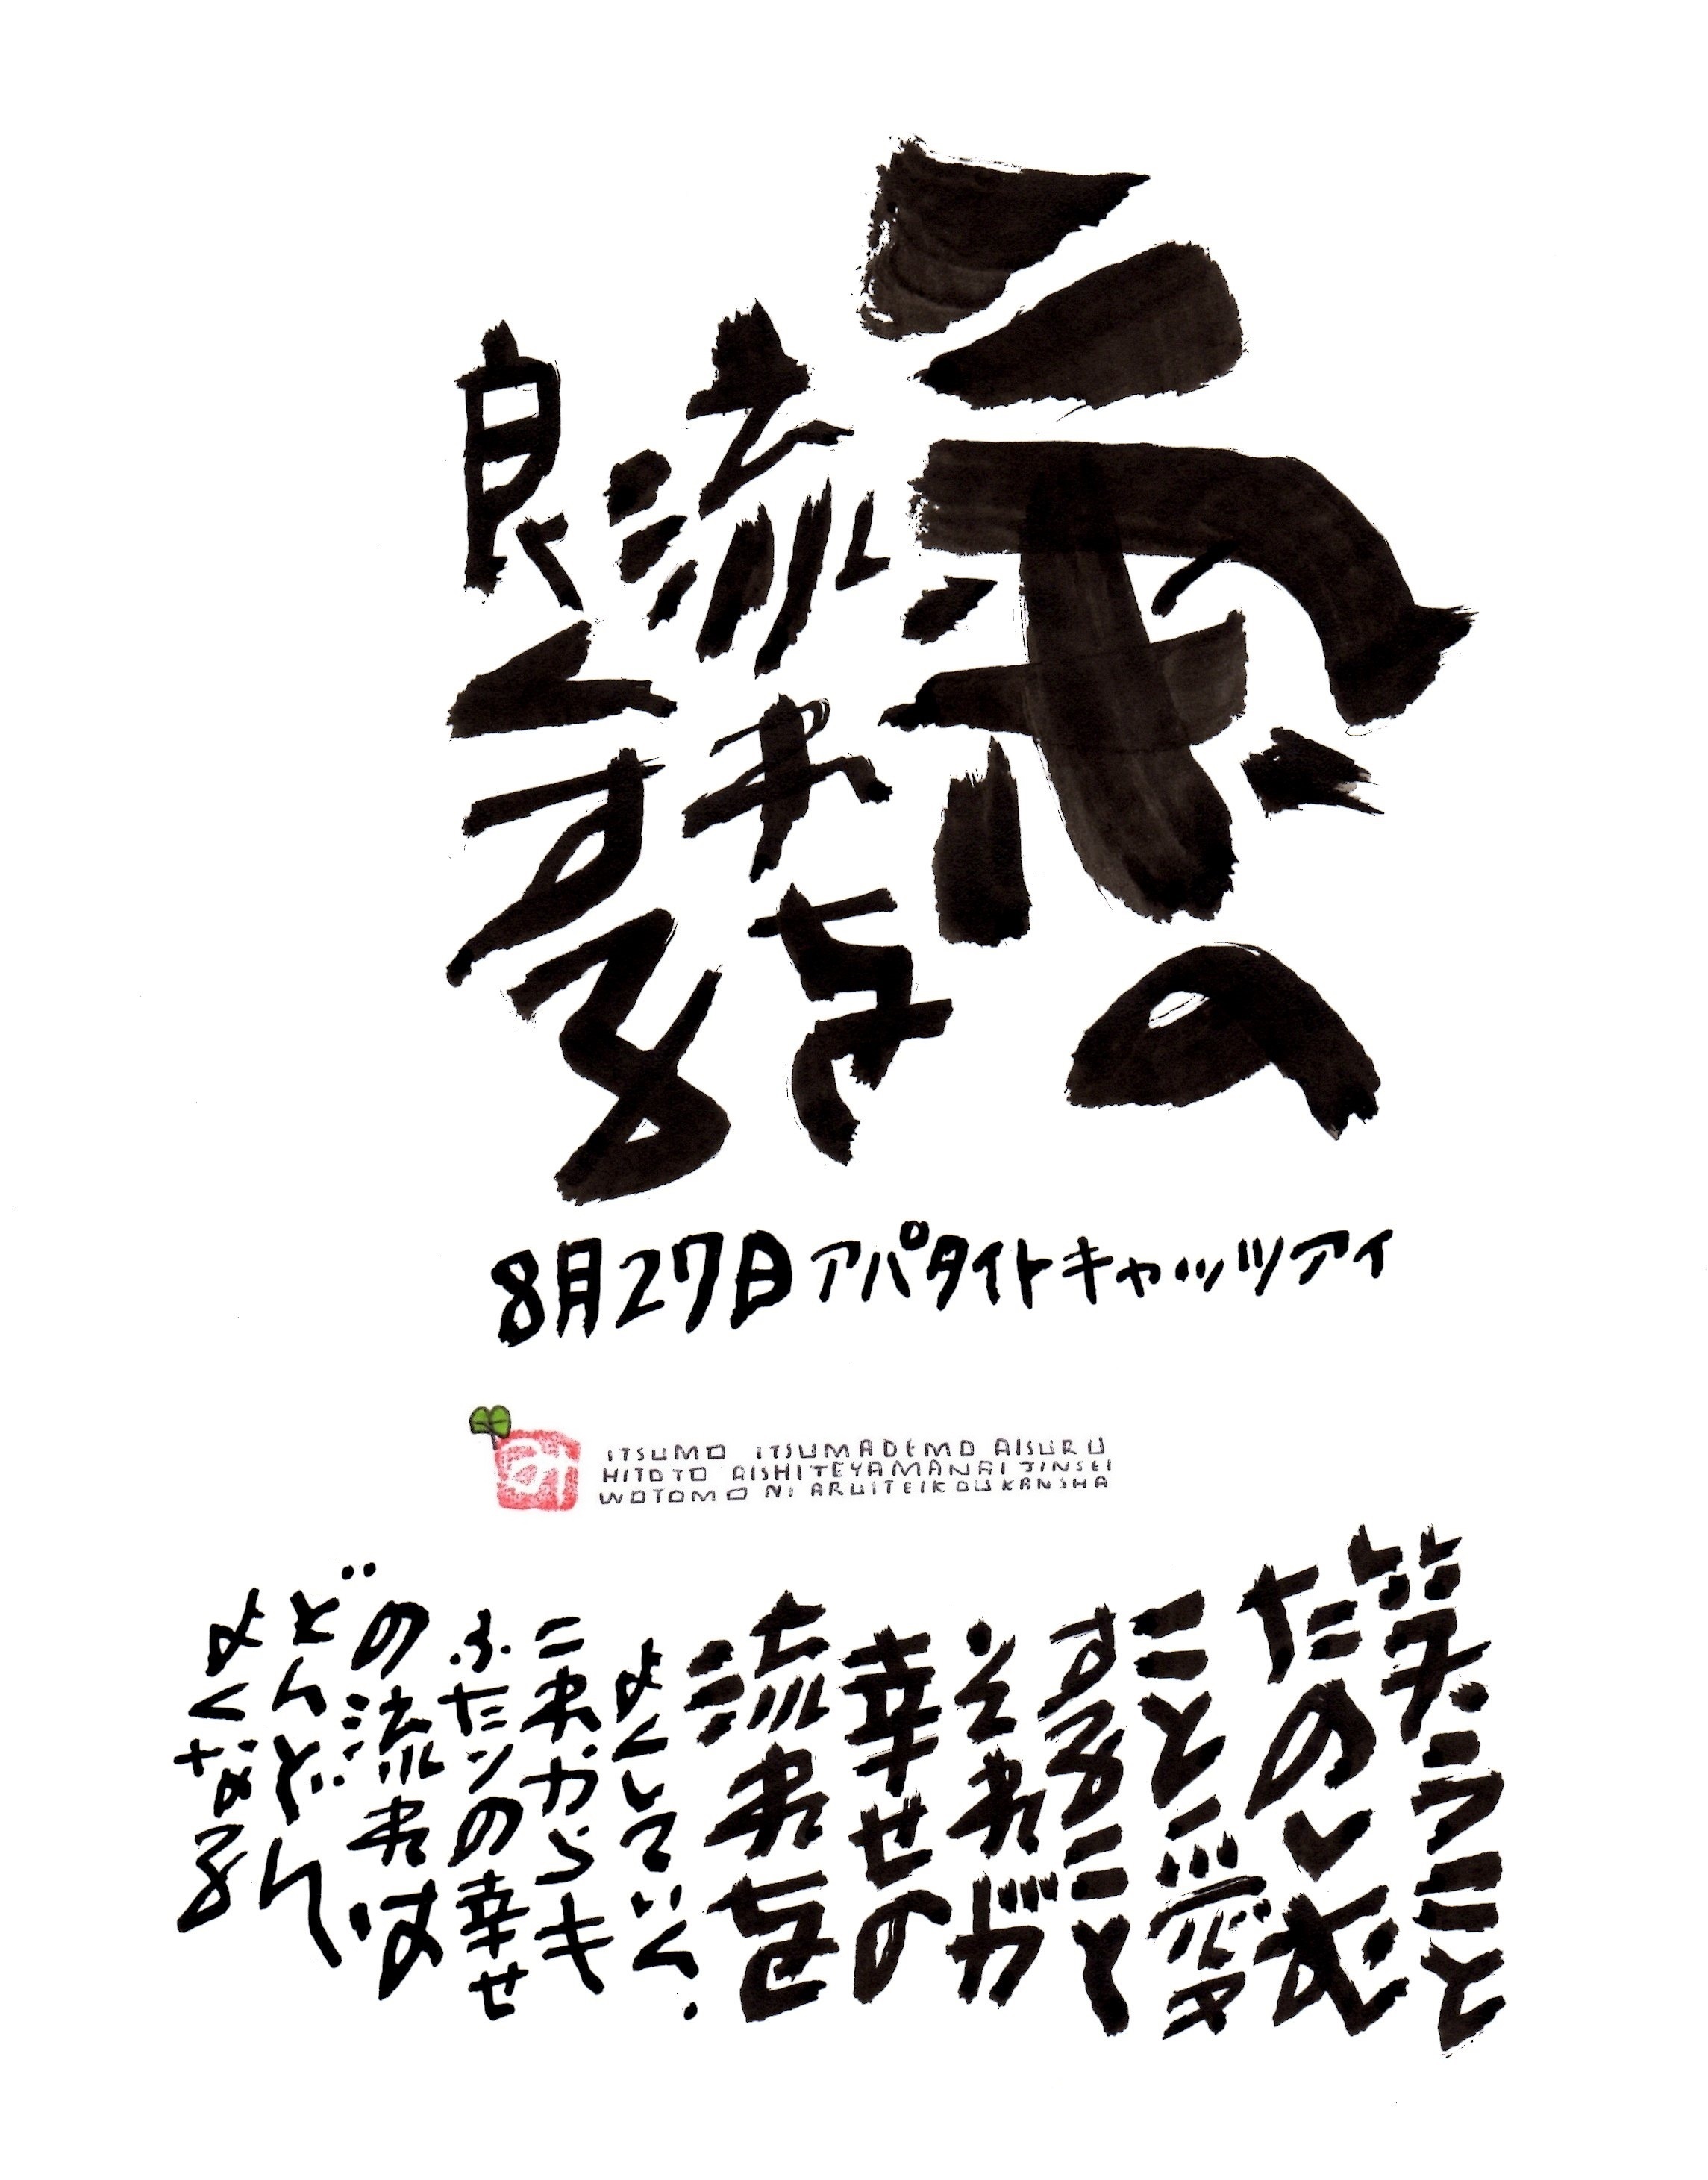 氣の
流れを
良くする
8月27日アパタイトキャッツアイ
ITSUMO ITSUMADEMO AISURU
HITOTO AISHITEYAMANAI JINSEI
WOTOMO NI ARUITEIKOU KANSHA
笑うこと
たのしむ
こと 愛
すること
それが
幸せの
流れを
よくしていく.
これからも
ふたりの幸せ
の流れは
どんどん
よくなる